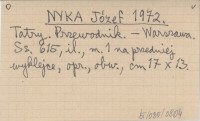 NYKA Józef 1972.
Tatry. Przewodnik. – Warszawa.
Ss. 615, il., m. 1 na przedniej
wyklejce, opr., obw., cm 17 x 13.